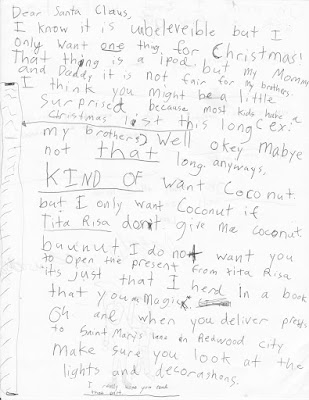 Dear Santa Claus,
I know it is unbeleveible but I
only want one thng. for Christmas!
That thing is a Ipod. but my Mommy
and Daddy it is not fair for my brothers.
I think you might be a little
Surprised because most kids have a
Christmas list this long (ex:
my brothers) Well okey mabye
not that long. anyways,
KIND OF want Coconut.
but I only want Coconut if
Tita Risa dosn't give me coconut.
buunut I do not want you
to open the present from tita Risa
its just that I herd In a book
that you magic
Oh and when you deliver prests
to Saint Mary's lane in Redwood City
make sure you look at the
lights and decorashons.
I really hope you read